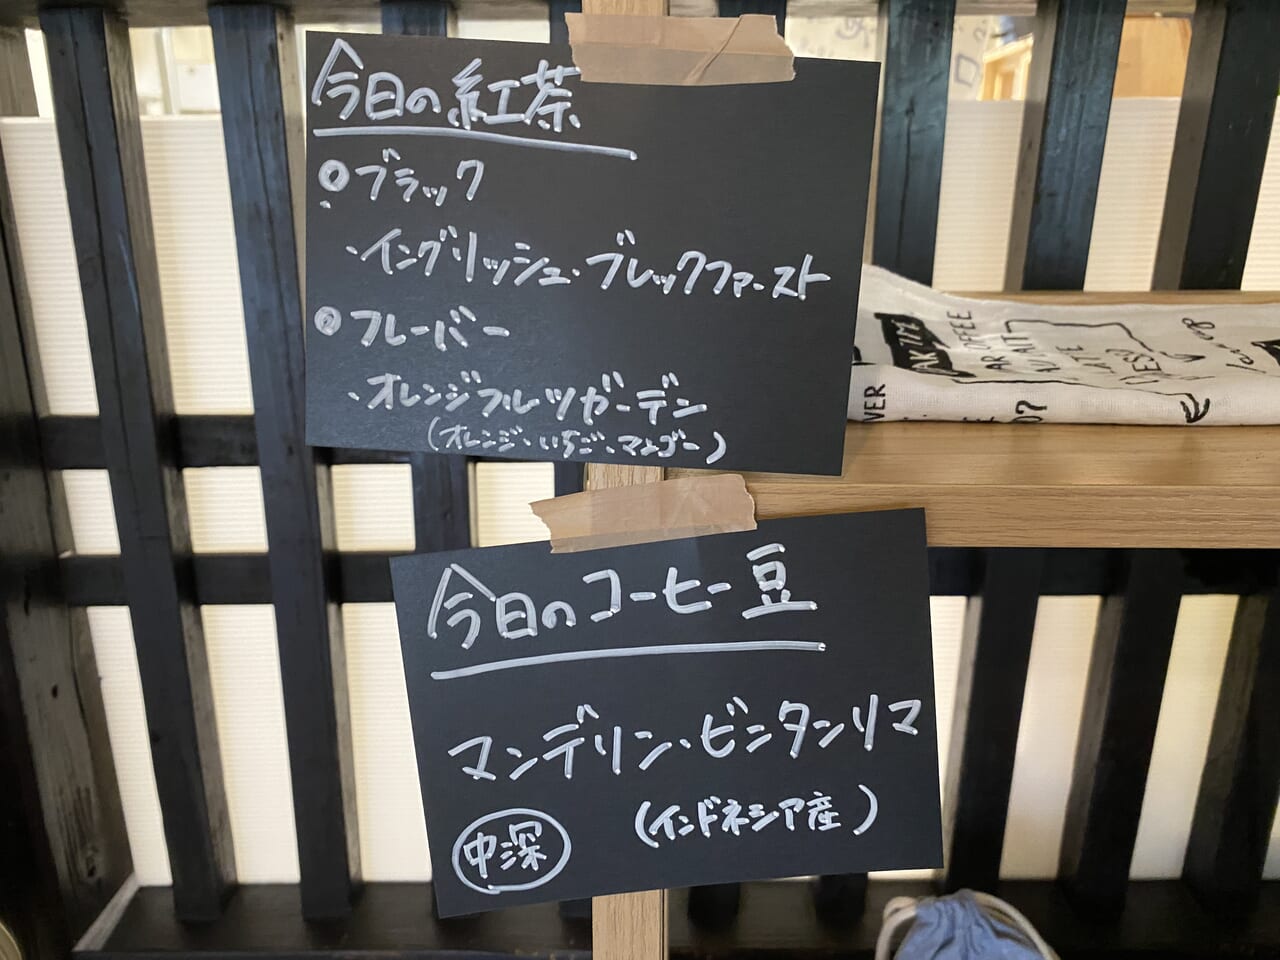 今日の紅茶
ブラック
・イングリッシュ・ブレックファースト
フレーバー
・オレンジフルーツガーデン
(オレンジ・いちご・マンゴー)
今日のコーヒー豆
マンデリン・ビンタンリマ
中深
(インドネシア産)
VER
COFFEE
WAIT